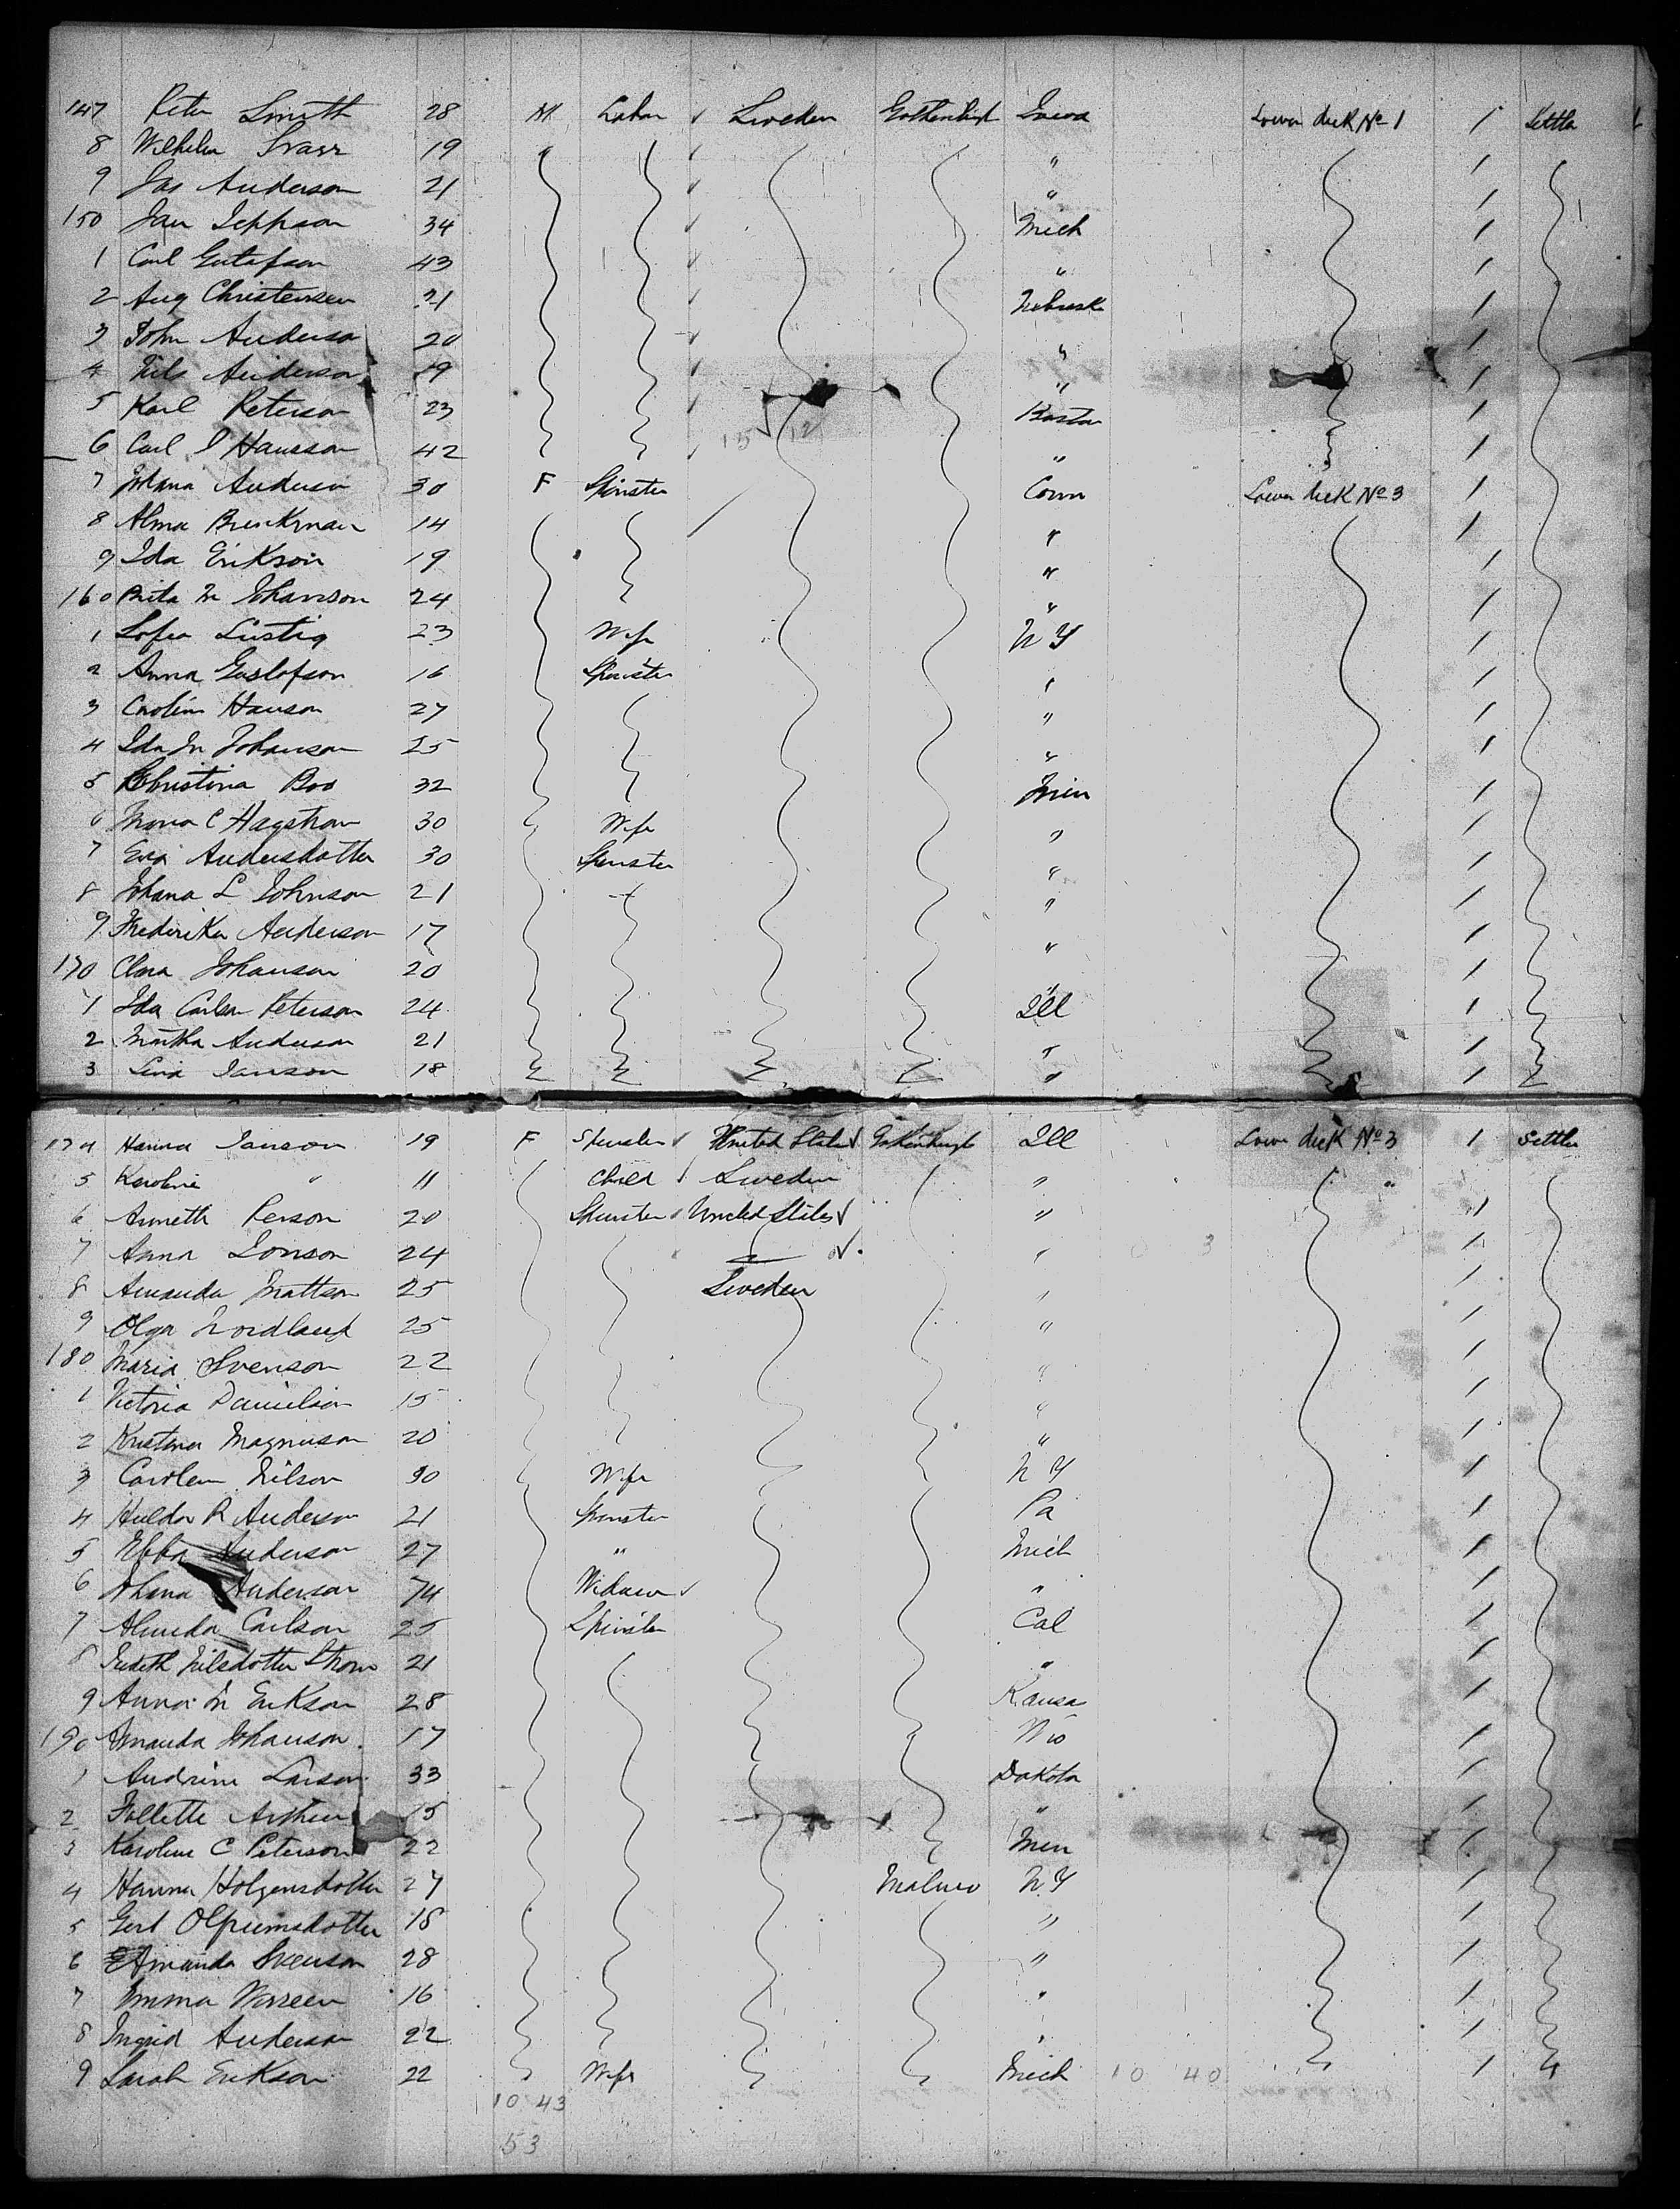 147 Peter Smith 28 M Labor Sweden Gothenbugh Iowa Lower deck No 1 / Settler
8 Wilhelm 19 " "
9 Jas Anderson 21 "
150 Jan Jeppson 34 Mich
1 Carl Gustafson 43 "
2 Aug Christensen 21 Nebrask
3 John Anderso 20 "
4 Nils Anderson 19 "
5 Karl Peterson 23 Boston
6 Carl J Hansson 42 "
7 Johana Anderson 30 F Spinster Conn Lower deck No 3
8 Alma Brinkman 14 "
9 Ida Erikson 19 "
160 Brita M Johanson 24 "
1 Sofia Lustig 23 Wife N Y
2 Anna Gustofson 16 Spinster "
3 Carolin Hanson 27 "
4 Ida M Johanson 25 "
5 Christina Boo 32 Min
6 Maria C Hagstrom 30 Wife "
7 Eva Andersdotter 30 Spinster "
8 Johana L Johnson 21 "
9 Frederika Anderson 17 "
170 Clara Johanson 20 "
1 Ida Carlson Peterson 24 Ill
2 Martha Anderson 21 "
3 Lina Janson 18 "
174 Hanna Janson 19 F Spinster United States Gothenbugh Ill Lower deck No 3 / Settler
5 Karoline " 11 Child Sweden "
6 Anneth Person 20 Spinster United States "
7 Anna Jonson 24 "
8 Amanda Mattson 25 Sweden "
9 Olga Nordland 25 "
180 Maria Svenson 22 "
1 Victoria Danielson 15 "
2 Kristina Magnuson 20 "
3 Carolin Nilson 30 Wife N Y
4 Hulda R Anderson 21 Spinster Pa
5 Ebba Anderson 27 " Mich
6 Johana Anderson 74 Widow "
7 Alinda Carlson 25 Spinster Cal
8 Judith Nilsdotter Strom 21 "
9 Anna M Erikson 28 Kansa
190 Amanda Johanson 17 Wis
1 Andrine Larson 33 Dakota
2 Follette 15 "
3 Karoline C Peterson 22 Min
4 Hanna Holgersdotter 27 Malmo N Y
5 Gert 18 "
6 Amanda Svenson 28 "
7 Emma 16 "
8 Ingrid Anderson 22 "
9 Sarah Erikson 22 Wife Mich 10 40
10 43
53